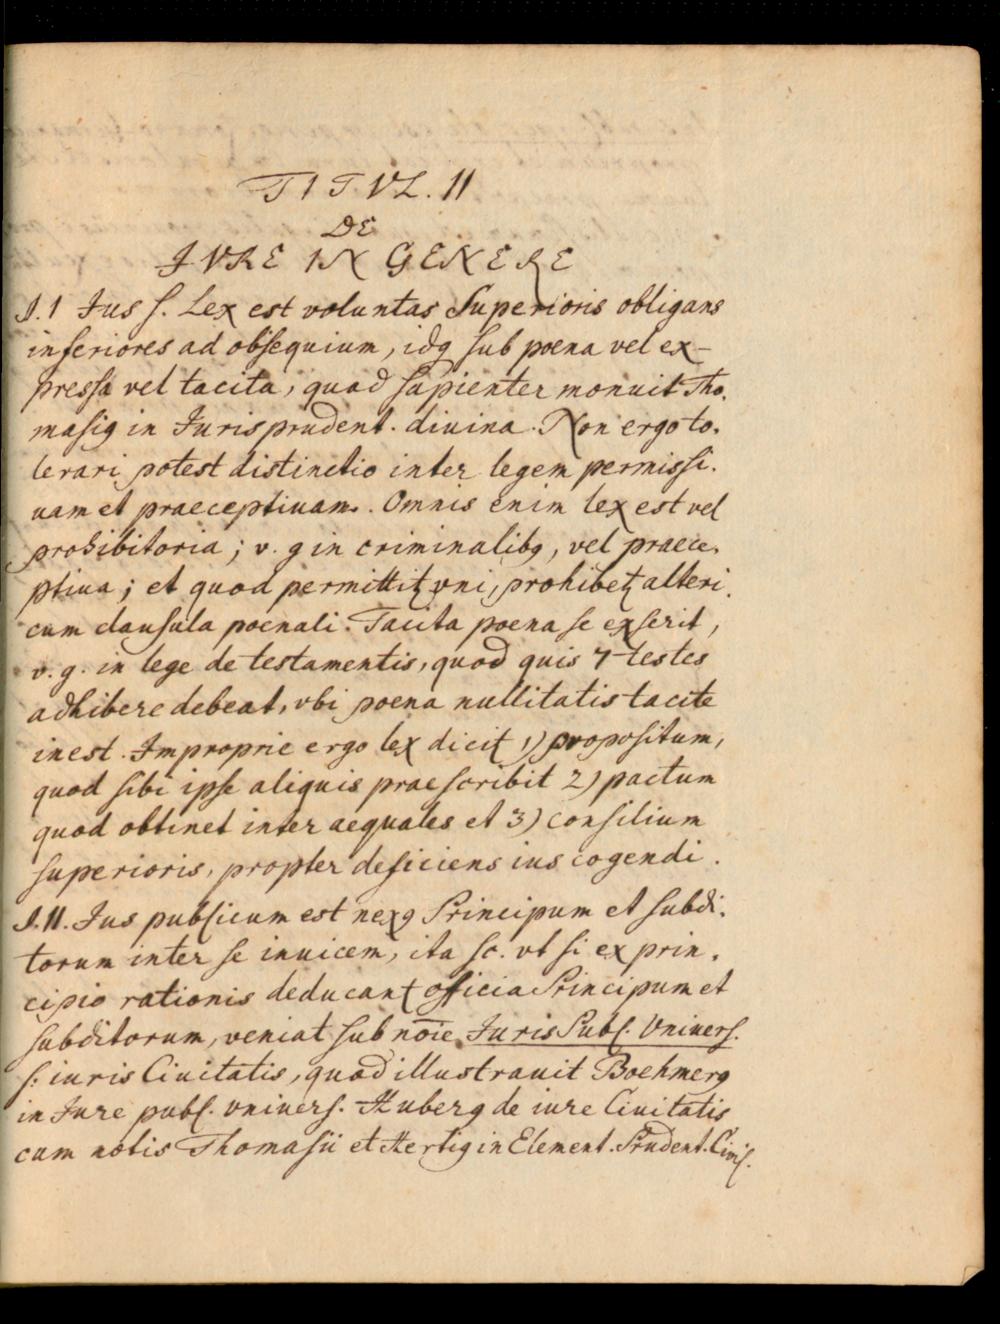 TITVL. II
DE
JVRE IN GENERE
§.1 Jus s. Lex est voluntas Superioris obligans
inferiores ad obsequium, idq sub poena vel ex-
pressa vel tacita, quod sapienter monuit Tho.
masig in Jurisprudent. diuina. Non ergo to.
lerari potest distinctio inter legem permissi.
uam et praeceptiuam. Omnis enim lex est vel
prohibitoria; v. g in criminalibg, vel praece.
ptiua; et quod permittit vni, prohibet alteri.
cum clausula poenali. Tacita poena se exserit,
v. g. in lege de testamentis, quod quis 7 testes
adhibere debeat, vbi poena nullitatis tacite
inest. Improprie ergo lex dicit 1) propositum,
quod sibi ipse aliquis praescribit 2) pactum
quod obtinet inter aequales et 3) consilium
superioris, propter deficiens ius cogendi.
§.II. Jus publicum est nexg Principum et subdi.
torum inter se inuicem, ita sc. vt si ex prin.
cipio rationis deducant officia Principum et
subditorum, veniat sub noīe Juris Publ. Vnivers.
s. iuris Ciuitatis, quod illustrauit Boehmerg
in Jure publ. vnivers. Huberg de iure Ciuitatis
cum notis Thomasii et Hertig in Element. Prudent. Civil.